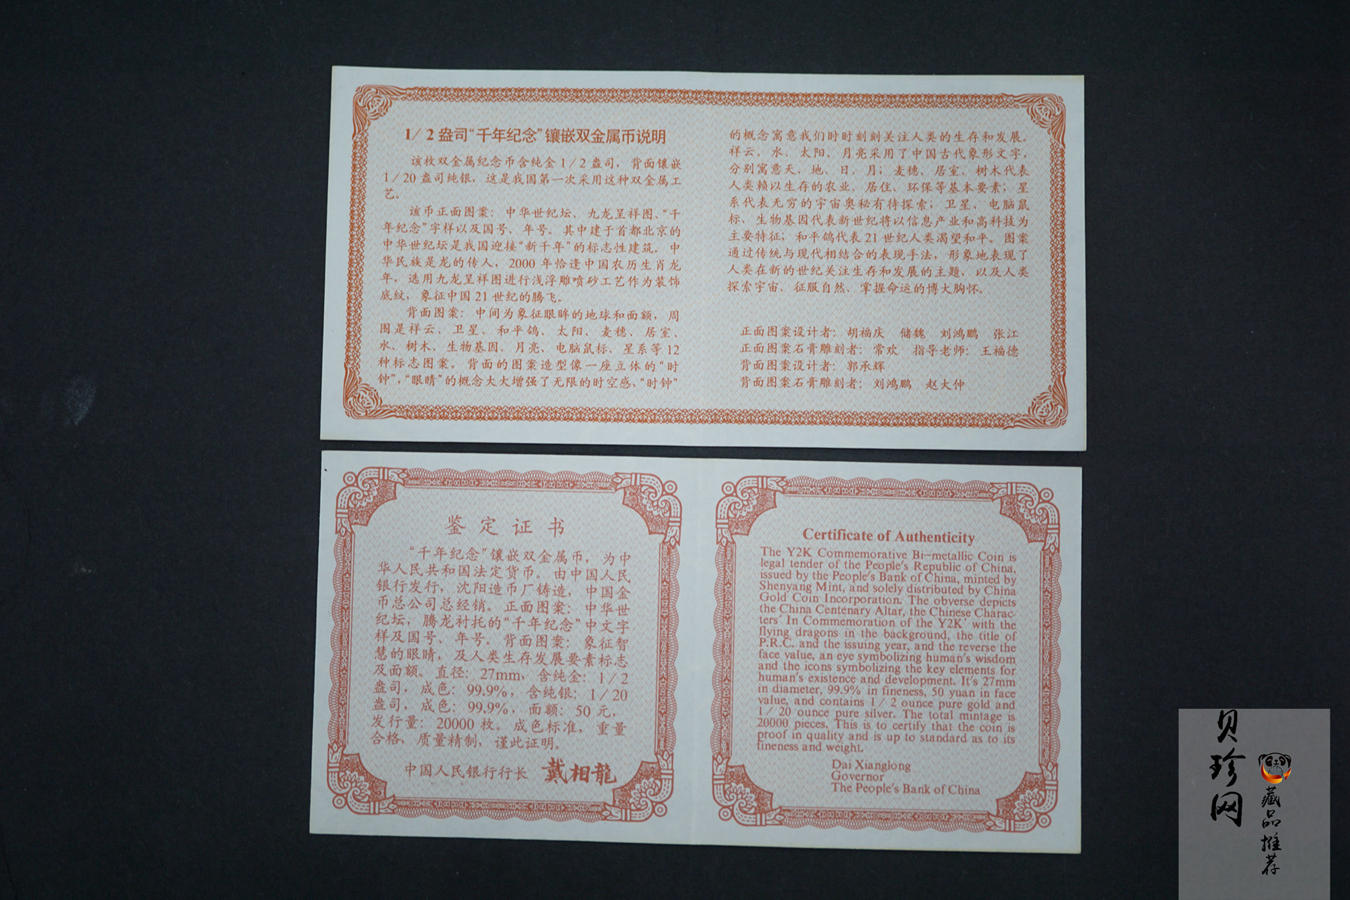 1/2盎司“千年纪念”镶嵌双金属币说明
该枚双金属纪念币含纯金1/2盎司，背面镶嵌
1/20盎司纯银，这是我国第一次采用这种双金属工
艺。
该币正面图案：中华世纪坛、九龙呈祥图、“千
年纪念”字样以及国号、年号。其中建于首都北京的
中华世纪坛是我国迎接“新千年”的标志性建筑。中
华民族是龙的传人，2000年恰逢中国农历生肖龙
年，选用九龙呈祥图进行浅浮雕喷砂工艺作为装饰
底纹，象征中国21世纪的腾飞。
背面图案：中间为象征眼眸的地球和面额，周
围是祥云、卫星、和平鸽、太阳、麦穗、居室、
水、树木、生物基因、月亮、电脑鼠标、星系等12
种标志图案。背面的图案造型像一座立体的“时
钟”，“眼睛”的概念大大增强了无限的时空感、“时钟”
的概念寓意我们时时刻刻关注人类的生存和发展。
祥云、水、太阳、月亮采用了中国古代象形文字，
分别寓意天、地、日、月；麦穗、居室、树木代表
人类赖以生存的农业、居住、环保等基本要素；星
系代表无穷的宇宙奥秘有待探索；卫星、电脑鼠
标、生物基因代表新世纪将以信息产业和高科技为
主要特征；和平鸽代表21世纪人类渴望和平。图案
通过传统与现代相结合的表现手法，形象地表现了
人类在新的世纪关注生存和发展的主题，以及人类
探索宇宙、征服自然、掌握命运的博大胸怀。
正面图案设计者：胡福庆 储魏 刘鸿鹏 张江
正面图案石膏雕刻者：常欢 指导老师：王福德
背面图案设计者：郭承辉
背面图案石膏雕刻者：刘鸿鹏 赵大仲
鉴定证书
“千年纪念”镶嵌双金属币，为中
华人民共和国法定货币。由中国人民
银行发行，沈阳造币厂铸造，中国金
币总公司总经销。正面图案：中华世
纪坛，腾龙衬托的“千年纪念”中文字
样及国号、年号。背面图案：象征智
慧的眼睛，及人类生存发展要素标志
及面额。直径：27mm，含纯金：1/2
盎司，成色：99.9%，含纯银：1/20
盎司，成色：99.9%，面额：50元，
发行量：20000枚。成色标准，重量
合格，质量精制，谨此证明。
中国人民银行行长 戴相龍
Certificate of Authenticity
The Y2K Commemorative Bi-metallic Coin is
legal tender of the People's Republic of China,
issued by the People's Bank of China, minted by
Shenyang Mint, and solely distributed by China
Gold Coin Incorporation. The obverse depicts
the China Centenary Altar, the Chinese Charac-
ters' In Commemoration of the Y2K' with the
flying dragons in the background, the title of
P.R.C. and the issuing year, and the reverse the
face value, an eye symbolizing human's wisdom
and the icons symbolizing the key elements for
human's existence and development. It's 27mm
in diameter, 99.9% in fineness, 50 yuan in face
value, and contains 1/2 ounce pure gold and
1/20 ounce pure silver. The total mintage is
20000 pieces. This is to certify that the coin is
proof in quality and is up to standard as to its
fineness and weight.
Dai Xianglong
Governor
The People's Bank of China
贝珍网
藏品推荐